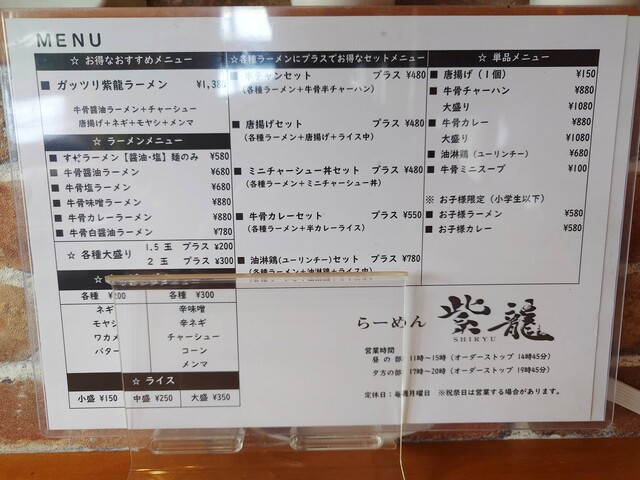 MENU
☆ お得なおすすめメニュー
■ ガッツリ紫龍ラーメン
牛骨醤油ラーメン＋チャーシュー
唐揚げ＋ネギ＋モヤシ＋メンマ
☆ ラーメンメニュー
■ すだラーメン【醤油・塩】麺のみ ¥580
■ 牛骨醤油ラーメン ¥680
■ 牛骨塩ラーメン ¥680
■ 牛骨味噌ラーメン ¥880
■ 牛骨カレーラーメン ¥880
■ 牛骨白醤油ラーメン ¥780
☆ 各種大盛り 1.5 玉 プラス ¥200
2 玉 プラス ¥300
各種 ¥200
ネギ
モヤシ
ワカメ
バター
各種 ¥300
辛味噌
辛ネギ
チャーシュー
コーン
メンマ
☆ ライス
小盛 ¥150 中盛 ¥250 大盛 ¥350
☆各種ラーメンにプラスでお得なセットメニュー
■ 牛チャンセット プラス ¥480
(各種ラーメン＋牛骨半チャーハン)
■ 唐揚げセット プラス ¥480
(各種ラーメン＋唐揚げ＋ライス中)
■ ミニチャーシュー丼セット プラス ¥480
(各種ラーメン＋ミニチャーシュー丼)
■ 牛骨カレーセット プラス ¥550
(各種ラーメン＋半カレーライス)
■ 油淋鶏(ユーリンチー)セット プラス ¥780
(各種ラーメン＋油淋鶏＋ライス中)
☆ 単品メニュー
■ 唐揚げ（１個） ¥150
■ 牛骨チャーハン ¥880
大盛り ¥1080
■ 牛骨カレー ¥880
大盛り ¥1080
■ 油淋鶏（ユーリンチー） ¥680
■ 牛骨ミニスープ ¥100
※ お子様限定（小学生以下）
■ お子様ラーメン ¥580
■ お子様カレー ¥580
らーめん 紫龍
SHIRYU
営業時間
昼の部 11時～15時（オーダーストップ 14時45分）
夕方の部 17時～20時（オーダーストップ 19時45分）
定休日：毎週月曜日 ※祝祭日は営業する場合があります。